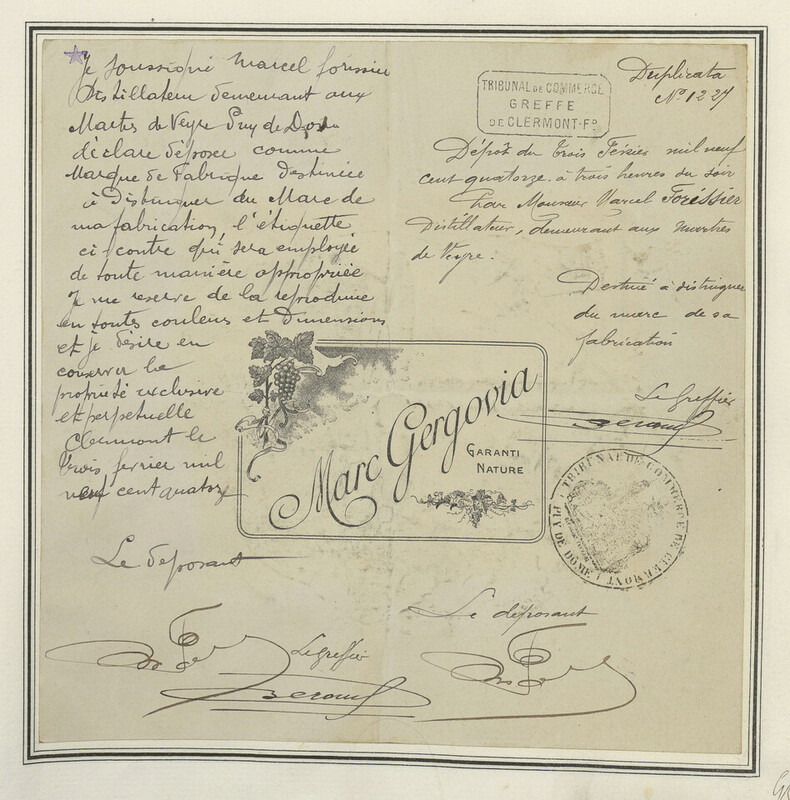 Je soussigné Marcel forissier
Distillateur demeurant aux
Martes de Veyre Puy de Dome
déclare déposer comme
Marque de Fabrique destinée
à Distinguer du Marc de
ma fabrication, l'étiquette
ci contre qui sera employée
de toute manière appropriée
Je me reserve de la reproduire
en toutes couleurs et Dimensions
et je désire en
conserver la
propriété exclusive
et perpetuelle
Clermont le
trois fevrier mil
neuf cent quatorze
Le deposant
Le greffier
Duplicata
N° 1227
TRIBUNAL DE COMMERCE
GREFFE
DE CLERMONT-Fd
Dépôt du trois Février mil neuf
cent quatorze à trois heures du soir
par Monsieur Marcel Foréssier
Distillateur, demeurant aux Martres
de Veyre.
Destiné à distinguer
du marc de sa
fabrication
Le Greffier
Marc Gergovia
GARANTI
NATURE
TRIBUNAL DE COMMERCE DE CLERMONT
PUY DE DOME
Le déposant